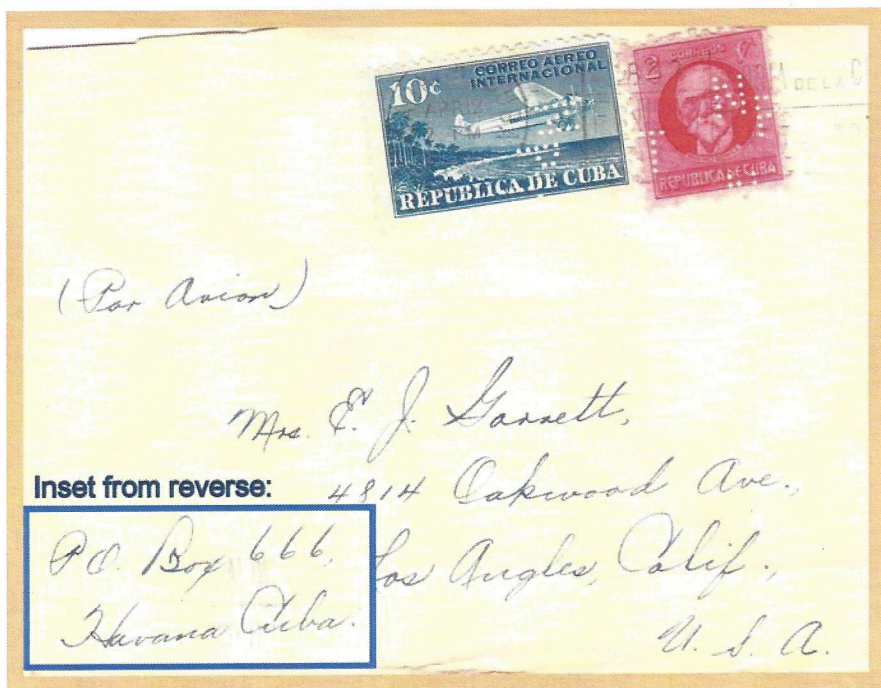 CORREO AEREO
INTERNACIONAL
10¢
REPUBLICA DE CUBA
CORREOS
2
REPUBLICA DE CUBA
DE LA C
(Par Avion)
Mrs. E. J. Garrett,
4814 Oakwood Ave.,
Los Angles, Calif.,
U. S. A.
Inset from reverse:
P.O. Box 666,
Havana Cuba.